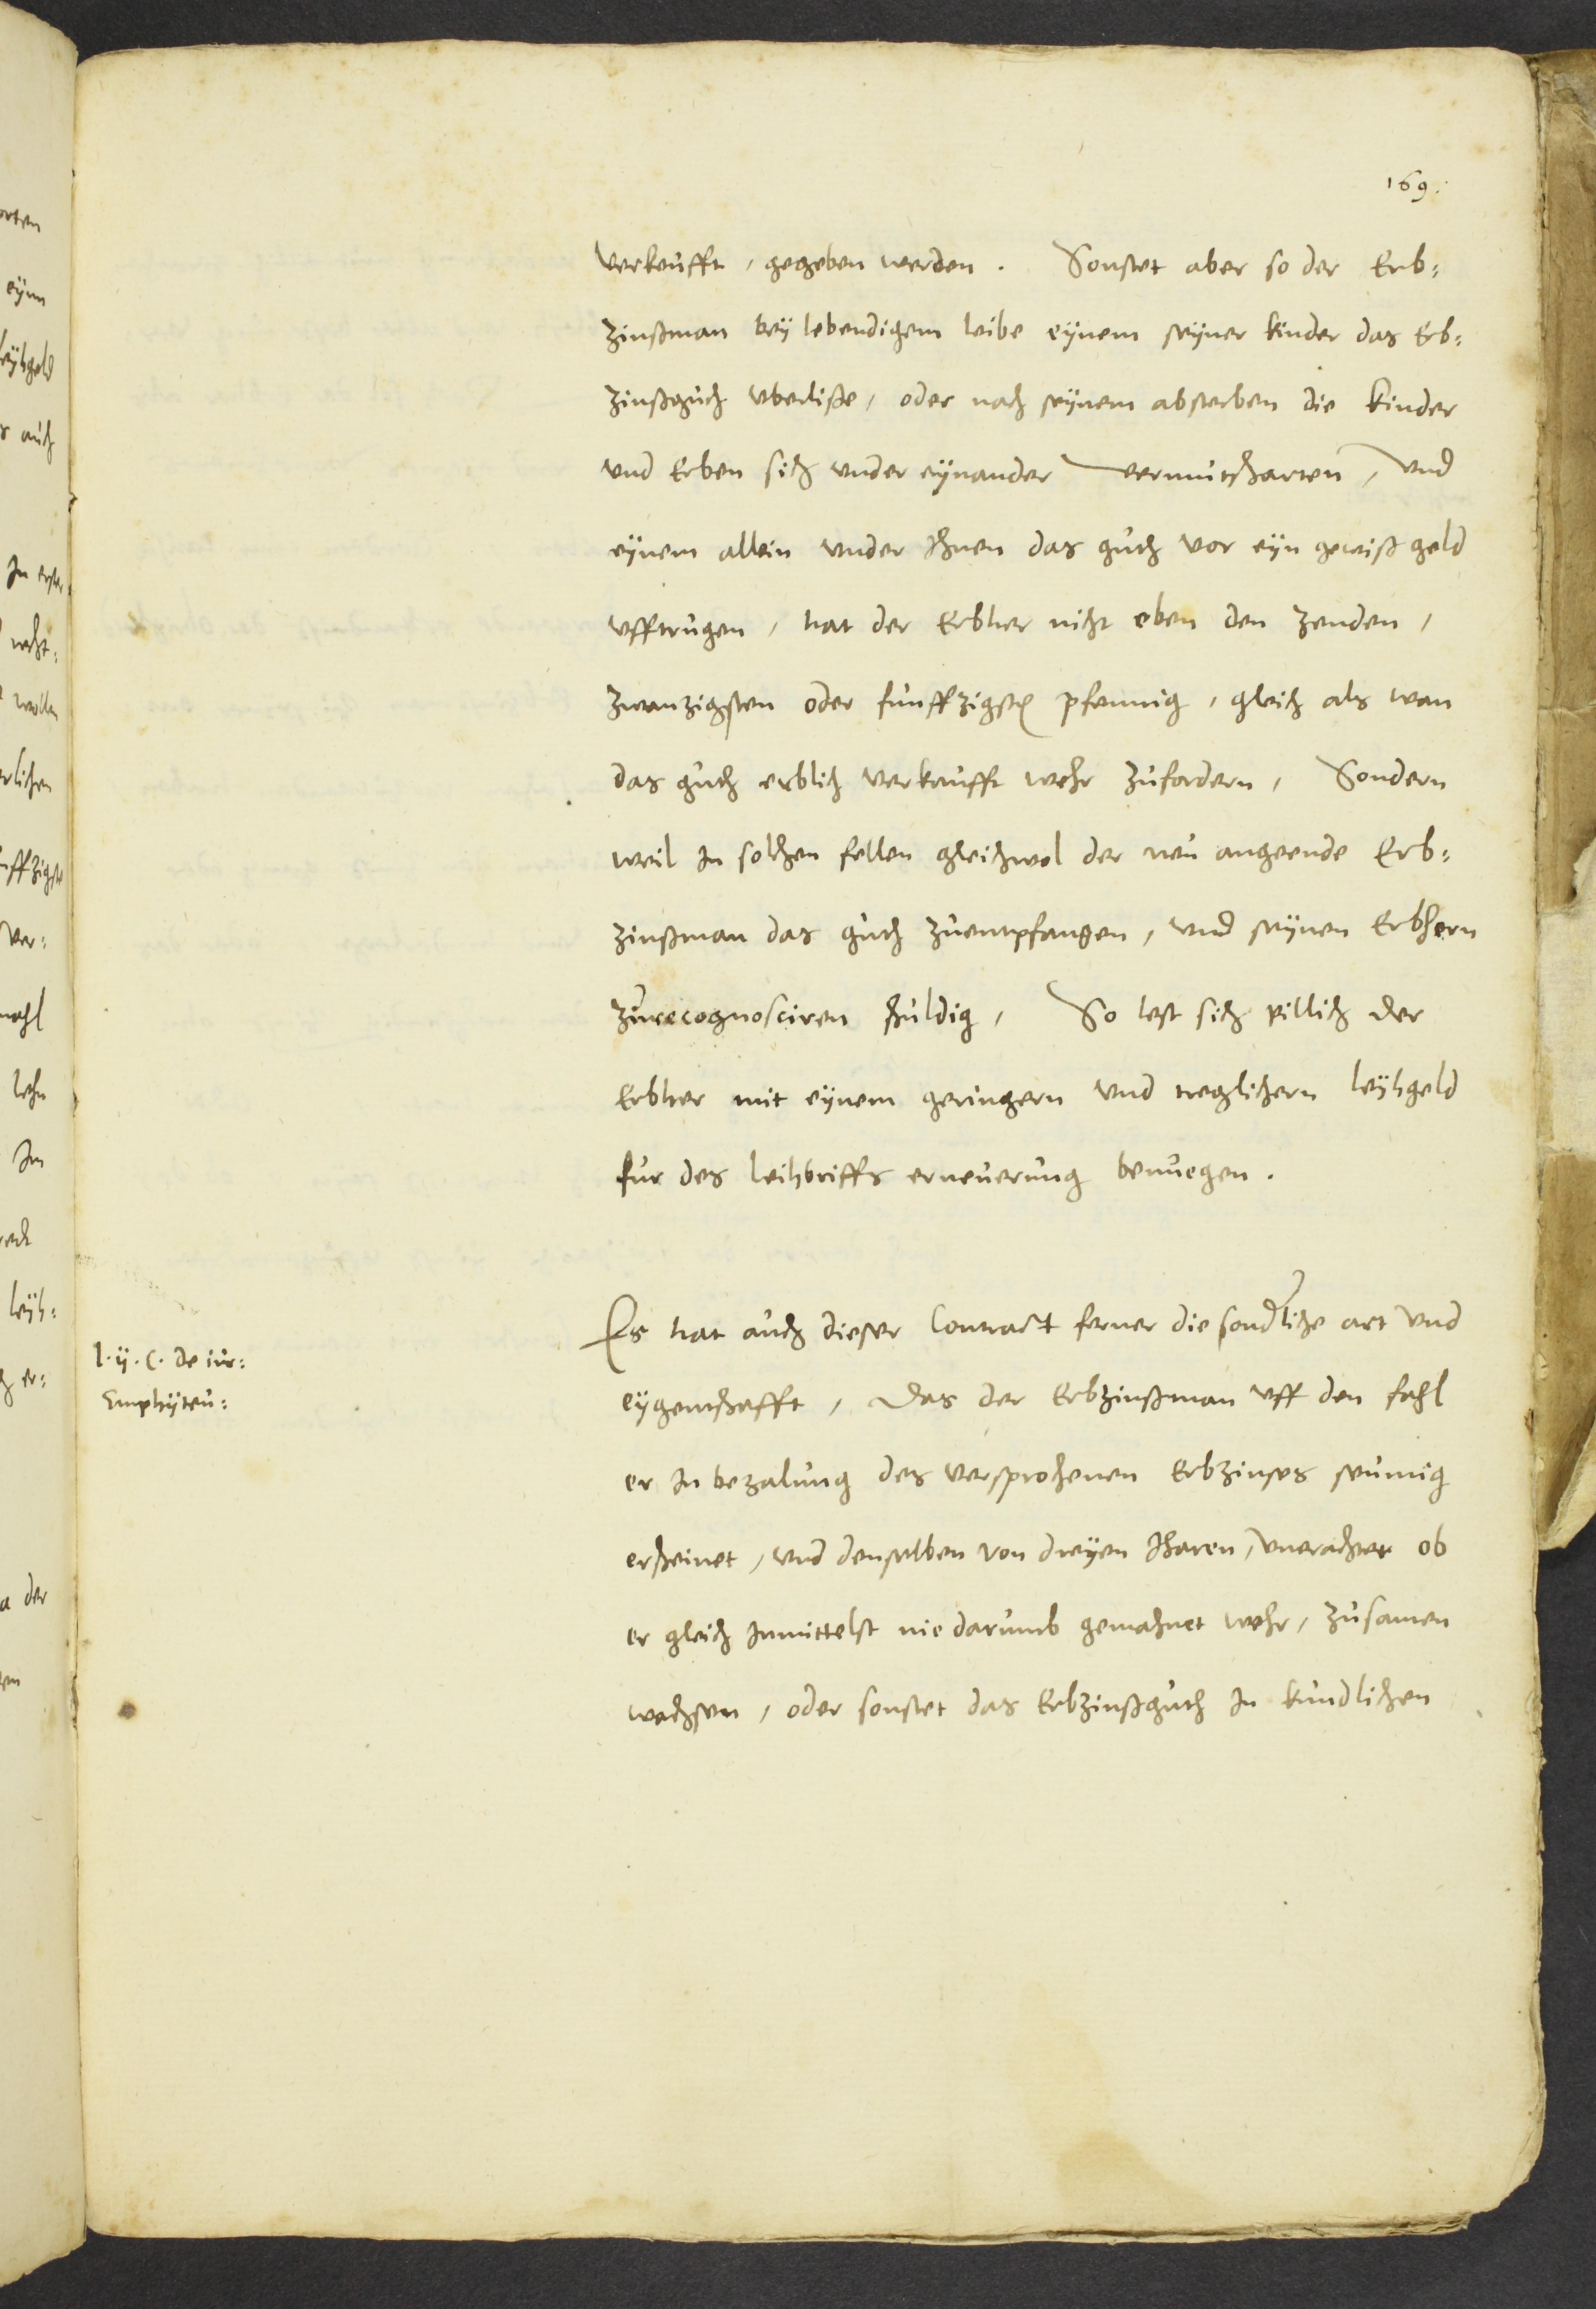 169.
verkeufft, gegeben werden. Sonstet aber so der Erb=
zinßman beÿ lebendigem leibe eÿnem seÿner kinder das Erb=
zinßguth uberliße, oder nach seÿnem absterben die kinder
und Erben sich under eÿnander vermutscharten, und
eÿnem allein under Ihnen das guth vor eÿn gewiß geld
ufftrugen, hat der Erbher nicht eben den zenden,
zwanzigsten oder funffzigsten pfennig, gleich als wan
das guth erblich verkaufft wehr zufordern, Sondern
weil in solchen fellen gleichwol der neu angeende Erb=
zinßman das guth zuempfangen, und seÿnen Erbhern
zurecognosciren schuldig, So lest sich pillich der
Erbher mit eÿnem geringern und treglichern leÿhgeld
fur des leihbriffs erneuerung benuegen.
l. ij. C. de iur=
Emphÿteu=
Es hat auch dieser Contract ferner die sonderliche art und
eÿgenschafft, Das der Erbzinßman uff den fahl
er in bezalung des versprochenen Erbzinses seumig
erscheinet, und denselben von dreÿen Iharen, unerachtet ob
er gleich inmittelst nie darumb gemahnet wehr, zusamen
wachsen, oder sonstet das Erbzinßguth in kundlichen